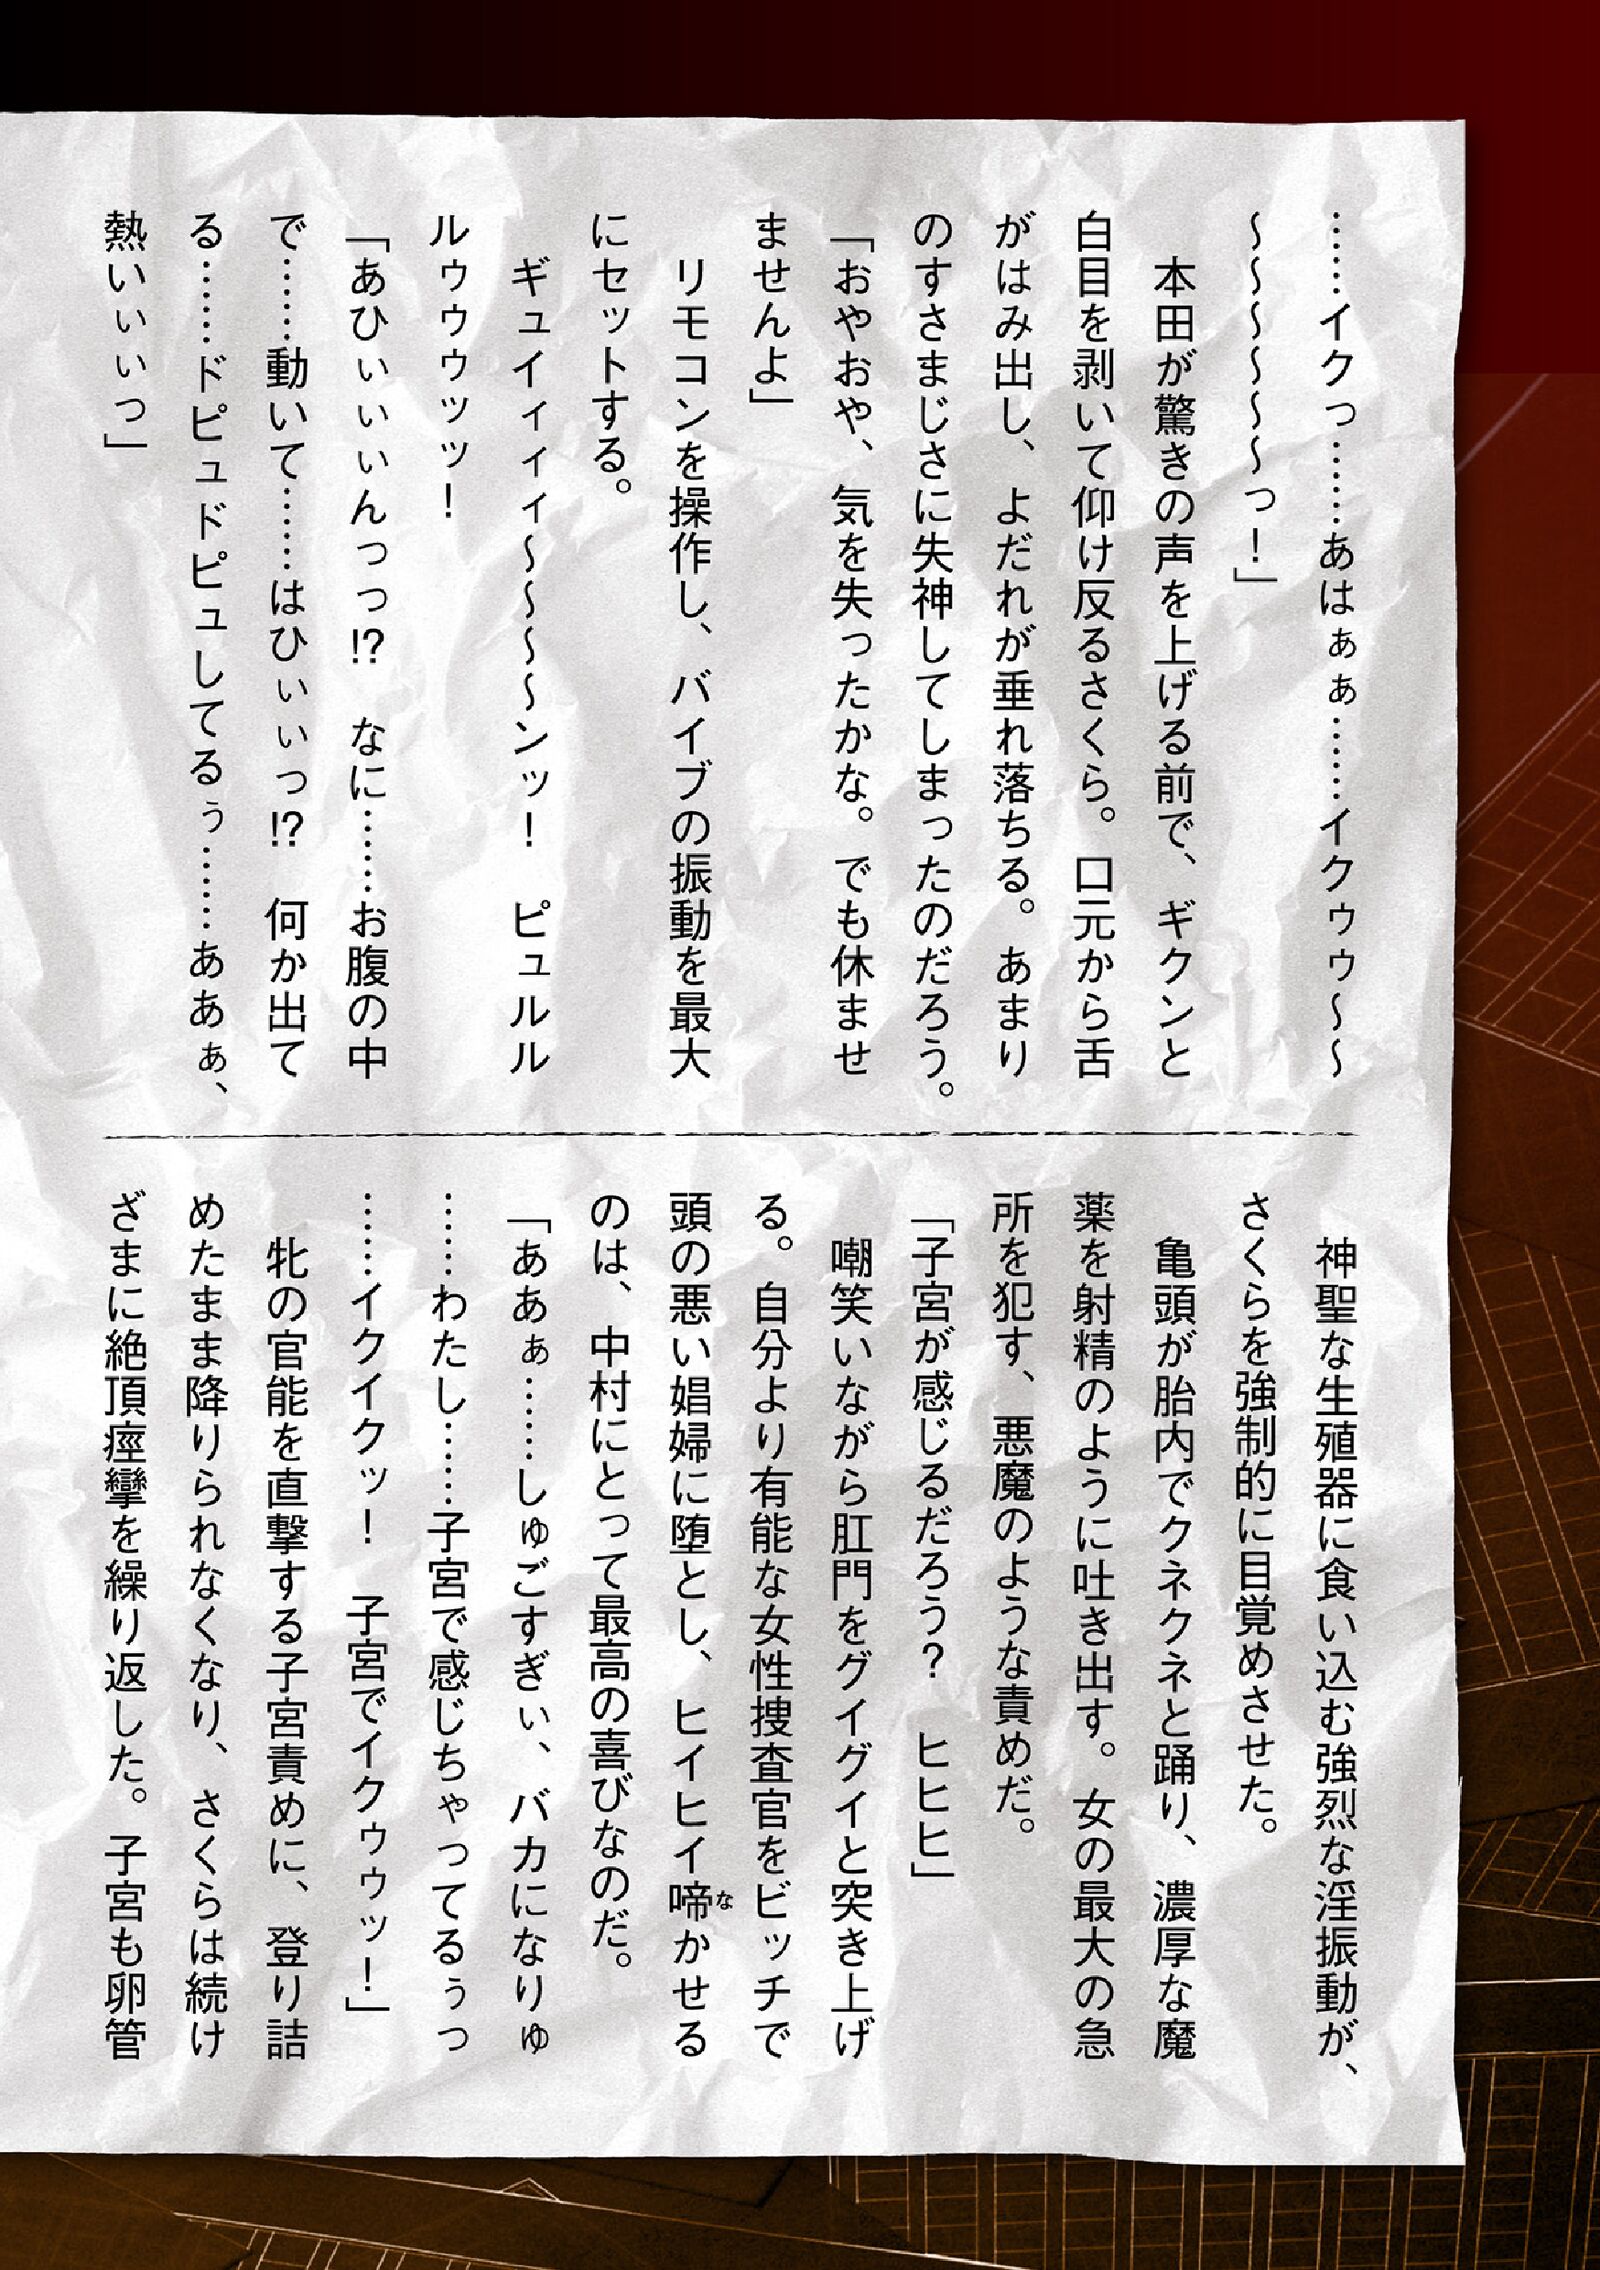 ……イクっ……あはぁぁ……イクゥゥ～～
～～～～～～っ！」
　本田が驚きの声を上げる前で、ギクンと
白目を剥いて仰け反るさくら。口元から舌
がはみ出し、よだれが垂れ落ちる。あまり
のすさまじさに失神してしまったのだろう。
「おやおや、気を失ったかな。でも休ませ
ませんよ」
　リモコンを操作し、バイブの振動を最大
にセットする。
　ギュイィィィ～～～～ンッ！　ピュルル
ルゥゥゥッッ！
「あひぃぃぃんっっ⁉　なに……お腹の中
で……動いて……はひぃぃっ⁉　何か出て
る……ドピュドピュしてるぅ……ああぁ、
熱いぃぃっ」
　神聖な生殖器に食い込む強烈な淫振動が、
さくらを強制的に目覚めさせた。
　亀頭が胎内でクネクネと踊り、濃厚な魔
薬を射精のように吐き出す。女の最大の急
所を犯す、悪魔のような責めだ。
「子宮が感じるだろう？　ヒヒヒ」
　嘲笑いながら肛門をグイグイと突き上げ
る。自分より有能な女性捜査官をビッチで
頭の悪い娼婦に堕とし、ヒイヒイ啼かせる
のは、中村にとって最高の喜びなのだ。
「ああぁ……しゅごすぎぃ、バカになりゅ
……わたし……子宮で感じちゃってるぅっ
……イクイクッ！　子宮でイクゥゥッ！」
　牝の官能を直撃する子宮責めに、登り詰
めたまま降りられなくなり、さくらは続け
ざまに絶頂痙攣を繰り返した。子宮も卵管